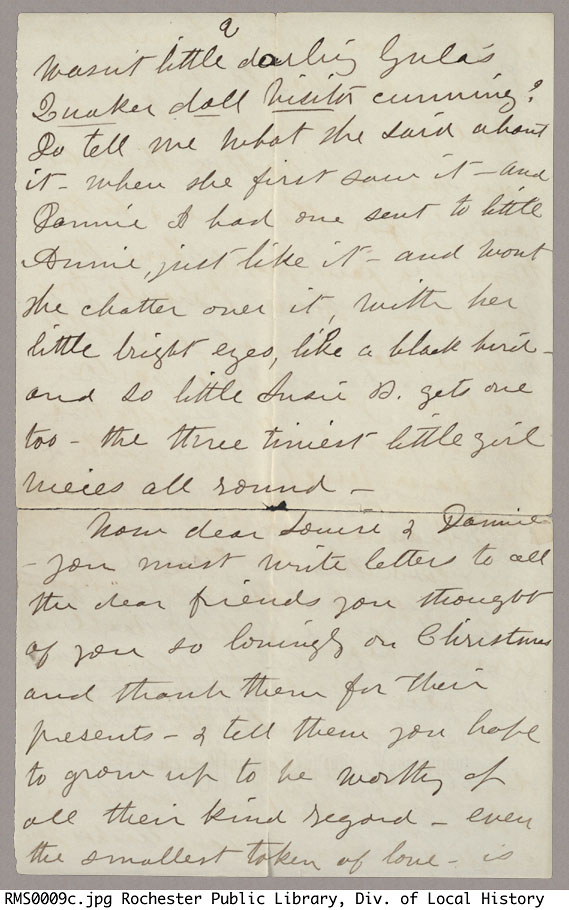 2
Wasn't little darling Gula's
Quaker doll visitor cunning?
Do tell me what she said about
it - when she first saw it - and
Dannie I had one sent to little
Annie, just like it - and wont
she chatter over it, with her
little bright eyes, like a black bird -
and so little Susie B. gets one
too - the three tiniest little girl
nieces all round -
Now dear Louise & Dannie
- you must write letters to all
the dear friends you thought
of you so lovingly on Christmas
and thank them for their
presents - & tell them you hope
to grow up to be worthy of
all their kind regard - even
the smallest token of love - is
RMS0009c.jpg Rochester Public Library, Div. of Local History